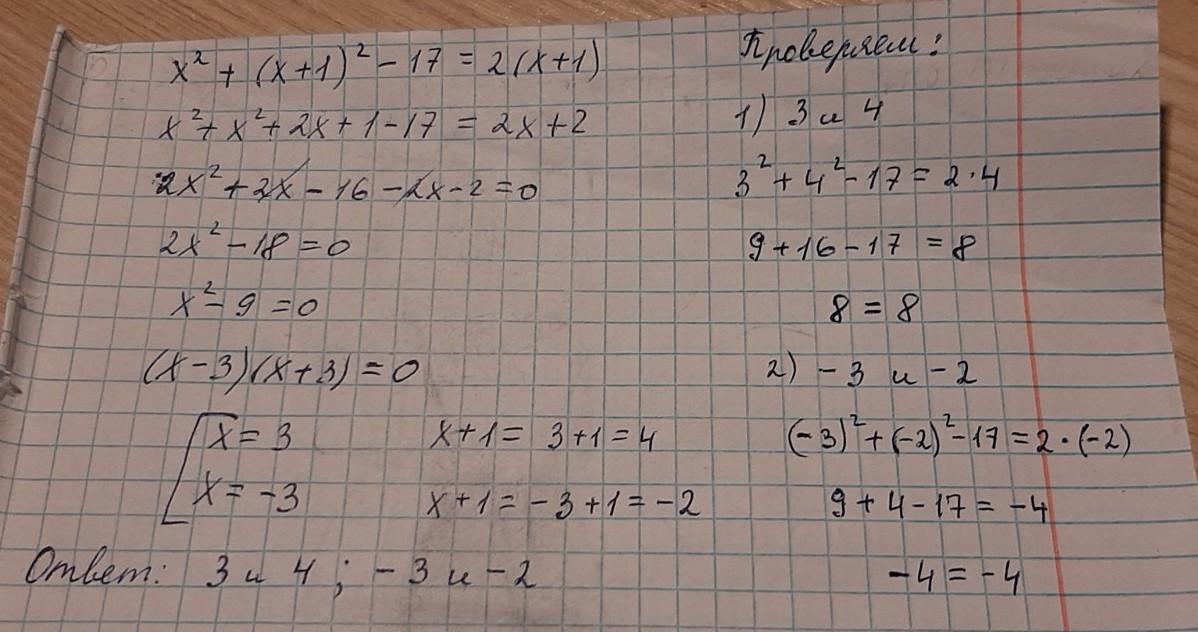 x² + (x+1)² - 17 = 2(x+1)
x² + x² + 2x + 1 - 17 = 2x + 2
2x² + 2x - 16 - 2x - 2 = 0
2x² - 18 = 0
x² - 9 = 0
(x-3)(x+3) = 0
x = 3 x+1 = 3+1 = 4
x = -3 x+1 = -3+1 = -2
Ответ: 3 и 4 ; -3 и -2
Проверяем:
1) 3 и 4
3² + 4² - 17 = 2·4
9 + 16 - 17 = 8
8 = 8
2) -3 и -2
(-3)² + (-2)² - 17 = 2·(-2)
9 + 4 - 17 = -4
-4 = -4